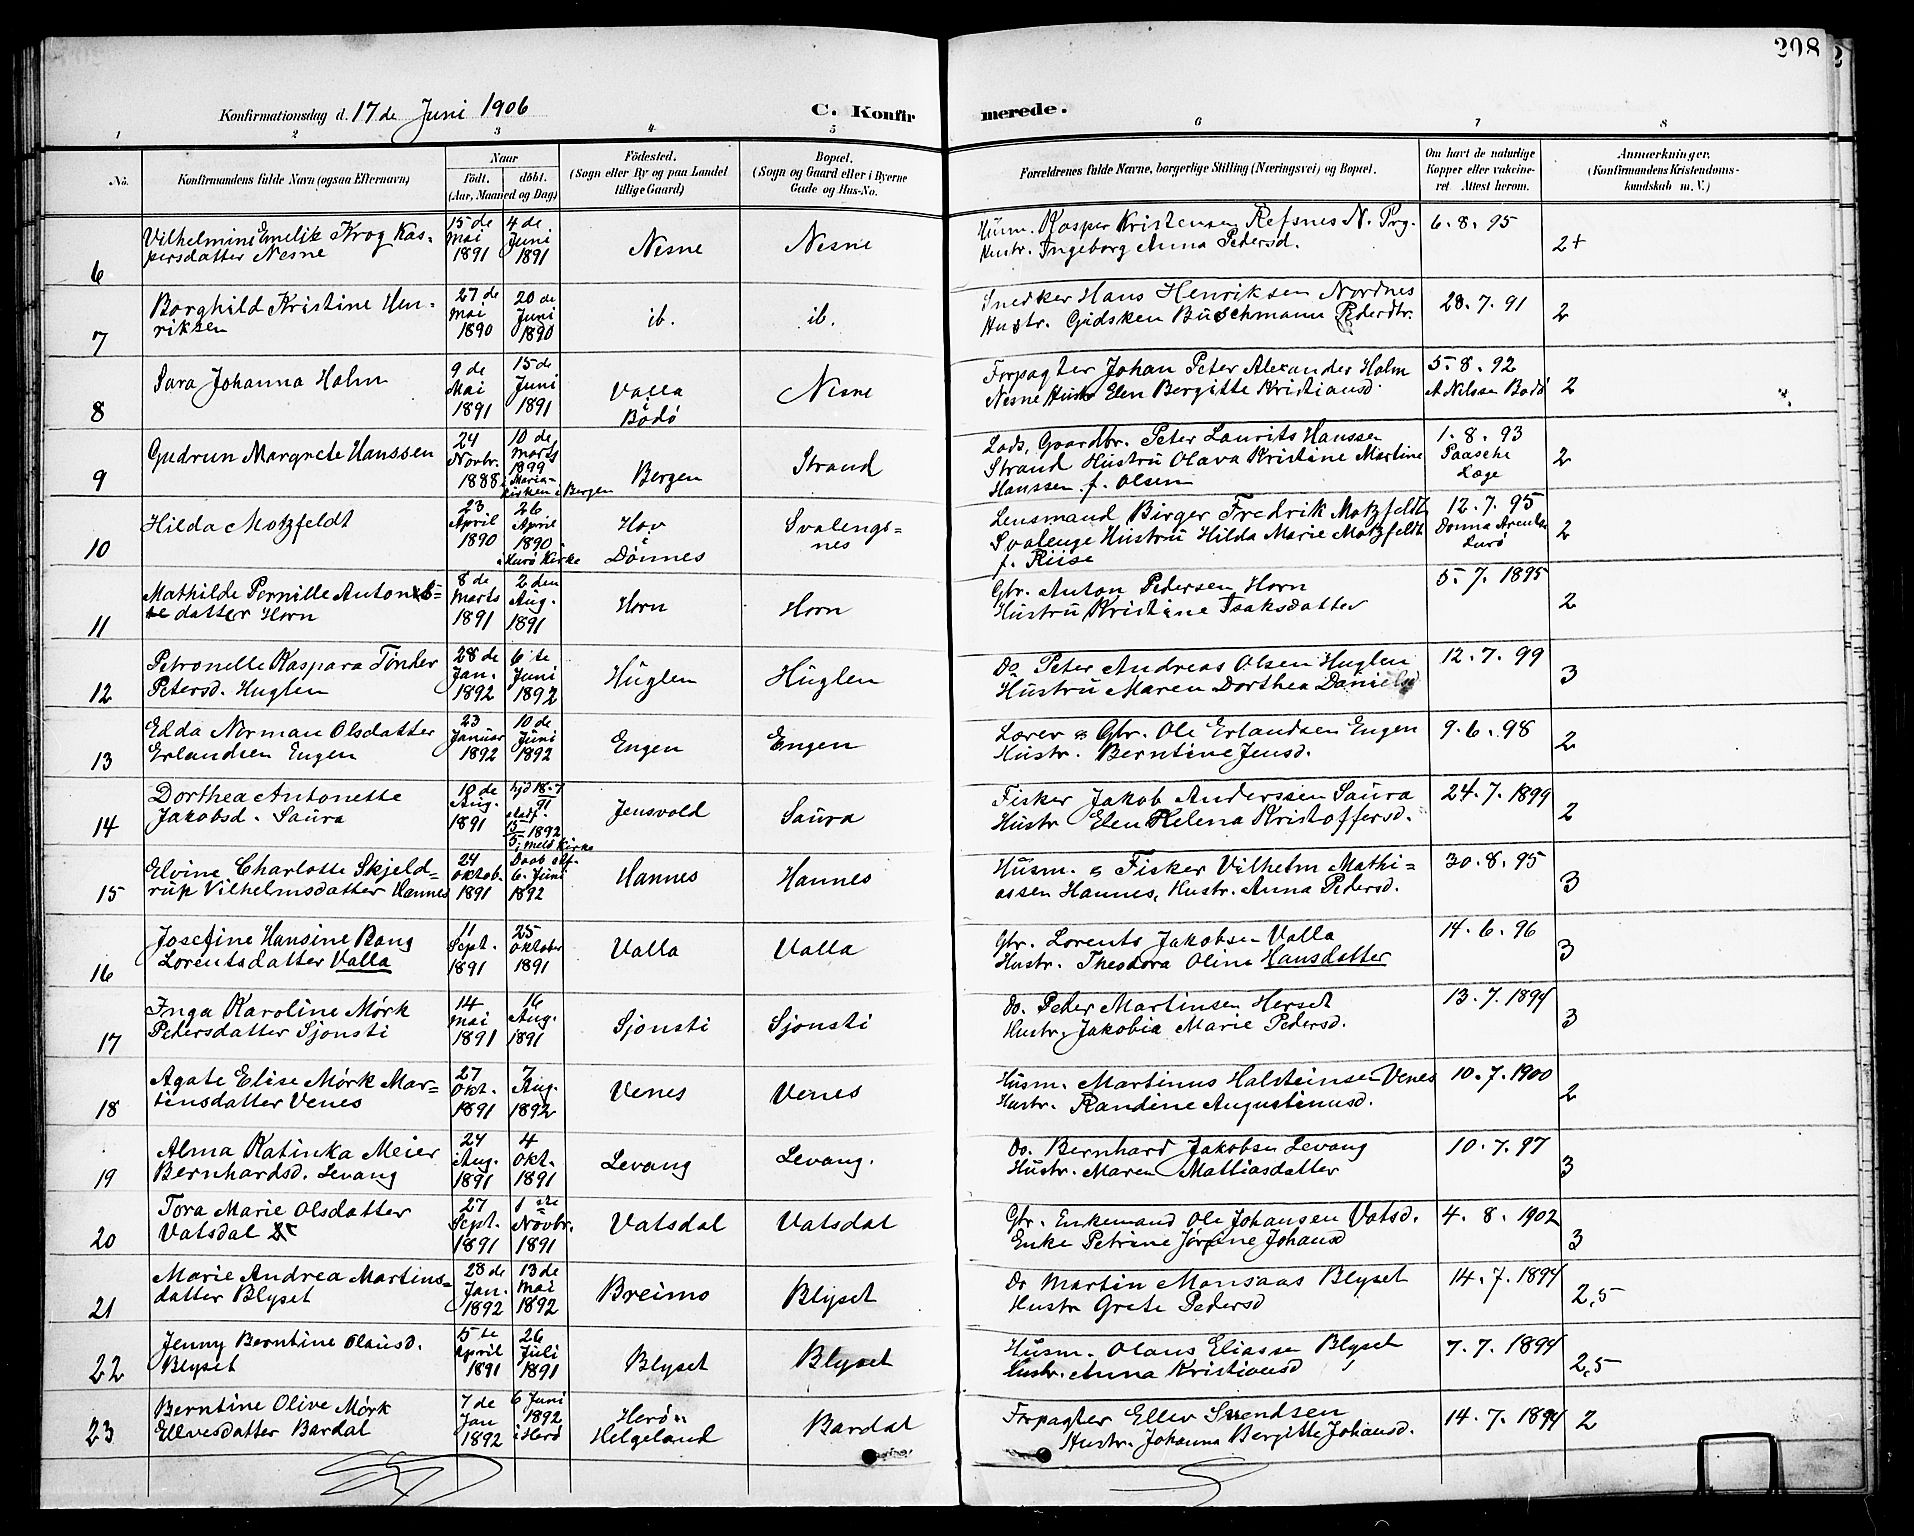 208
Konfirmationsdag d. 17de Juni 1906
C. Konfirmerede.
1 2 3 4 5 6 7 8
No.
Konfirmandens fulde Navn (ogsaa Efternavn)
Naar
födt. döbt.
(Aar, Maaned og Dag)
Födested.
(Sogn eller By og paa Landet
tillige Gaard)
Bopæl.
(Sogn og Gaard eller i Byerne
Gade og Hus-No.
Forældrenes fulde Navne, borgerlige Stilling (Næringsvei) og Bopæl.
Om havt de naturlige
Kopper eller vakcine-
ret. Attest herom.
Anmærkninger.
(Konfirmandens Kristendoms-
kundskab m. V.)
6 Vilhelmine Emelie Krog Kas-
persdatter Nesne
15 de Mai 1891
4 de Juni 1891
Nesne
Nesne
Husm. Kasper Kristensen Refsnes N. Prg.
Hustr. Ingeborg Anna Pedersd.
6.8.95
2+
7 Borghild Kristine Hen-
riksen
27 de Mai 1890
20 de Juni 1890
ib.
ib.
Snedker Hans Henriksen Nordnes
Hustr. Gidsken Buschmann Pederdtr.
28.7.91
2
8 Sara Johanna Holm
9 de Mai 1891
15 de Juni 1891
Valla
i
Bodø
Nesne
Forpagter Johan Peter Alexander Holm
Nesne Hustr Elen Bergitte Kristiansd.
5.8.92
A Nilssen Bodø
2
9 Gudrun Margrete Hanssen
24 Novbr. 1888
10 de Marts 1899
i Maria-
kirken i Bergen
Bergen
Strand
Lods, Gaardbr. Peter Laurits Hanssen
Strand Hustru Olava Kristine Martine
Hanssen f. Olsen
1.8.93
Paasche
Læge
2
10 Hilda Motzfeldt
23 April 1890
26 April 1890
i Kurø Kirke
Hov
i
Dønnes
Svalengs=
nes
Lensmand Birger Fredrik Motzfeldt
Svalenge Hustru Hilda Marie Motzfeldt
f. Riise
12.7.95
2
11 Mathilde Pernille Antons=
datter Horn
8 de Marts 1891
2 den Aug. 1891
Horn
Horn
Gbr. Anton Pedersen Horn
Hustru Kristine Isaksdatter
5.7.1895
2
12 Petronelle Kaspara Tønder
Petersd. Huglen
28 de Jan. 1892
6 te Juni 1892
Huglen
Huglen
Do Peter Andreas Olsen Huglen
Hustru Maren Dorthea Danielsd
12.7.99
3
13 Edda Norman Olsdatter
Erlandsen Engen
23 Januar 1892
10 de Juni 1892
Engen
Engen
Lærer & Gbr. Ole Erlandsen Engen
Hustr. Berntine Jensd.
9.6.98
2
14 Dorthea Antonette
Jakobsd. Saura
10 de Aug. 1891
hjd 18-9
91
stadf.
5 1892
5 i Melø Kirke
Jensvold
Saura
Fisker Jakob Anderssen Saura
Hustr Elen Helena Kristoffersd.
24.7.1899
2
15 Elvine Charlotte Skjeld=
rup Vilhelmsdatter Hannes
24 oktob. 1891
Daab stf.
6. Juni 1892
Hannes
Hannes
Husm. & Fisker Vilhelm Mathi=
assen Hannes, Hustr. Anna Pedersd.
30.8.95
3
16 Josefine Hansine Bang
Lorentsdatter Valla
11 Sept. 1891
25 oktober 1891
Valla
Valla
Gbr. Lorents Jakobsen Valla
Hustr. Theodora Oline Hansdatter
14.6.96
3
17 Inga Karoline Mørk
Pedersdatter Sjonsti
14 Mai 1891
16 Aug. 1891
Sjonsti
Sjonsti
Do. Peter Martinsen Herset
Hustr. Jakobia Marie Pedersd.
13.7.1894
3
18 Agate Elise Mørk Mar=
tinsdatter Venes
27 Okt. 1891
7 Aug. 1892
Venes
Venes
Husm. Martinus Halsteinsen Venes
Hustr. Randine Augustinusd.
10.7.1900
2
19 Alma Katinka Meier
Bernhardsd. Levang
24 Aug. 1891
4 Okt. 1891
Levang
Levang.
Do. Bernhard Jakobsen Levang
Hustr. Maren Mathiasdatter
10.7.97
3
20 Tora Marie Olsdatter
Vatsdal
27 Sept. 1891
1 ste Novbr. 1891
Vatsdal
Vatsdal
Gbr. Enkemand Ole Johansen Vatsd.
Enke Petrine Jørgine Johansd
4.8.1902
3
21 Marie Andrea Martins=
datter Blyset
28 de Jan. 1892
13 de Mai 1892
Breimo
Blyset
Do Martin Monsaas Blyset
Hustr Grete Pedersd
14.7.1894
2,5
22 Jenny Berntine Olausd.
Blyset
5 te April 1891
26 Juli 1891
Blyset
Blyset
Husm. Olaus Eliassen Blyset
Hustr. Anna Kristiansd
7.7.1894
2,5
23 Berntine Olive Mørk
Ellevsdatter Bardal
7 de Jan 1892
6 Juni 1892
i Herø
Herø i
Helgeland
Bardal
Forpagter Ellev Svendsen
Hustr. Johanna Bergitte Johansd.
14.7.1894
2